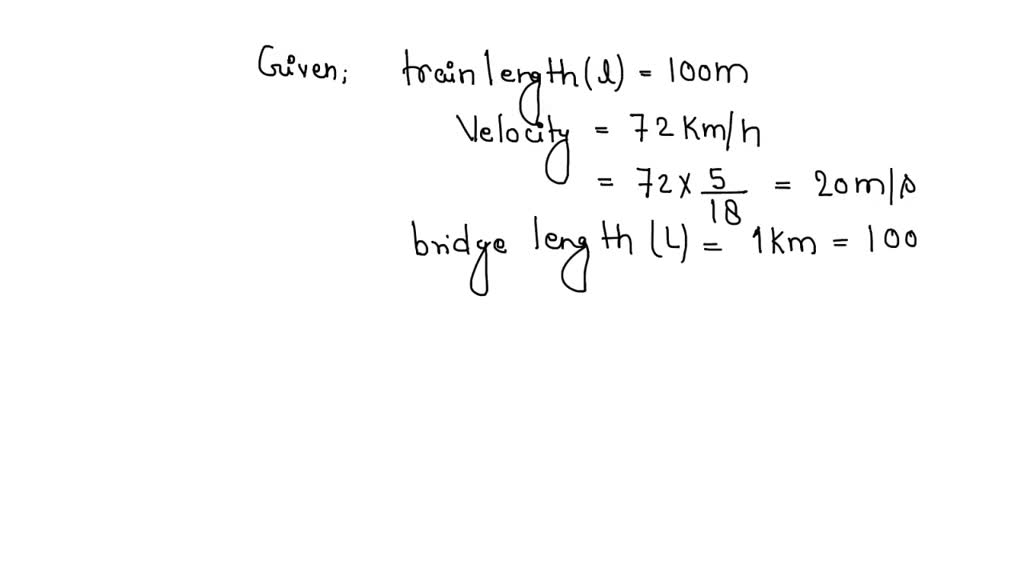 Given; train length (l) = 100m
Velocity = 72 Km/h
= 72 × 5/18 = 20m/s
bridge length (L) = 1Km = 100